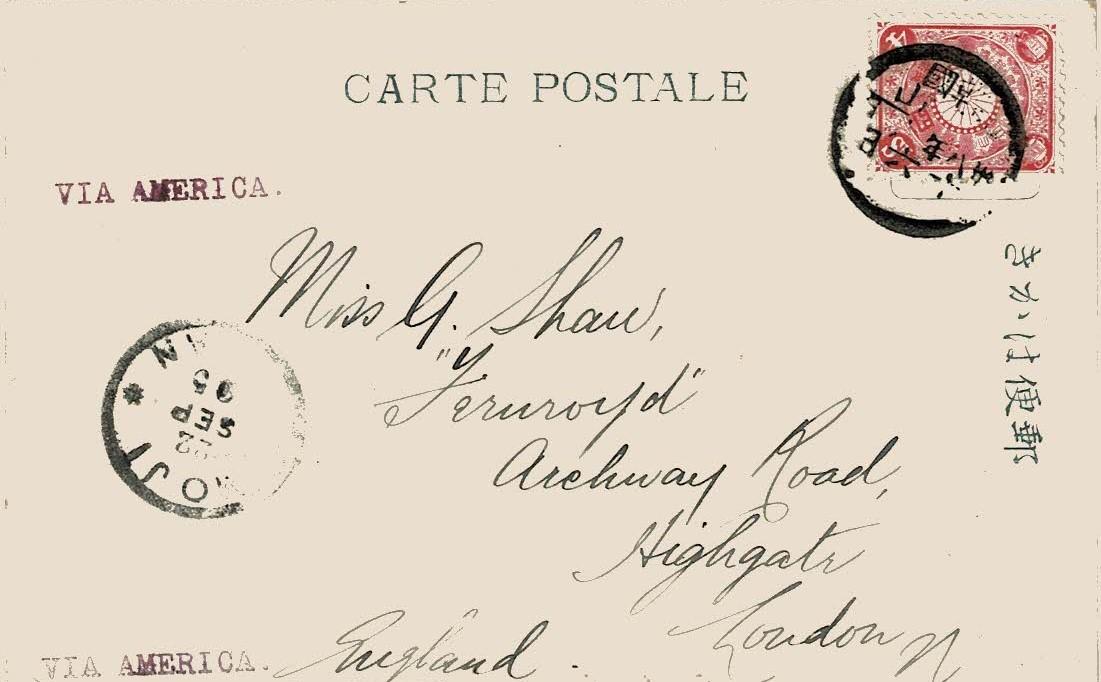 CARTE POSTALE
VIA AMERICA.
Miss G. Shaw,
"Fernroyd"
Archway Road,
Highgate
London N
England.
VIA AMERICA.
郵便はかき
MOJI
22
SEP
05